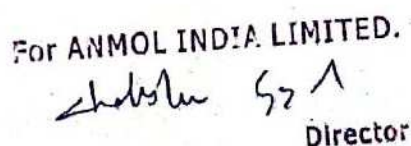 For ANMOL INDIA LIMITED.
Director